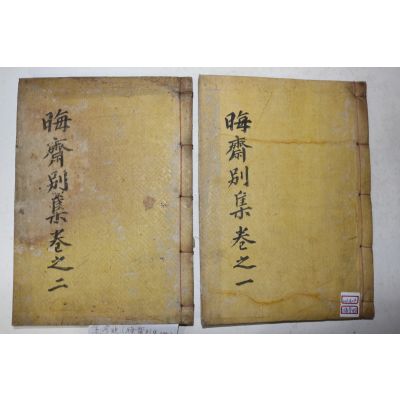 晦齋別集卷之二
晦齋別集卷之一